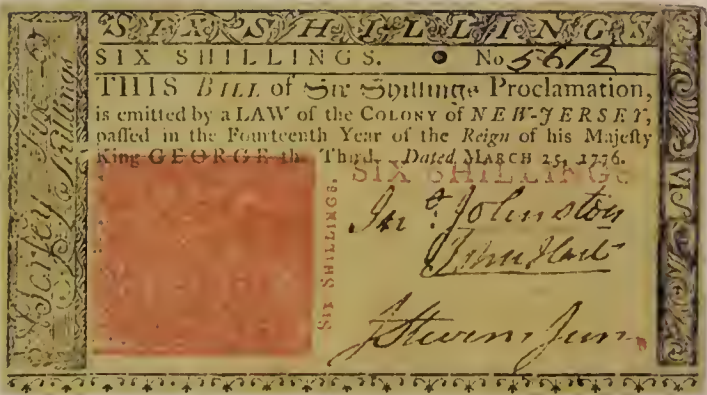 SIX SHILLINGS
SIX SHILLINGS. No 5612
THIS BILL of Six Shillings Proclamation,
is emitted by a LAW of the COLONY of NEW-JERSEY,
paſſed in the Fourteenth Year of the Reign of his Majeſty
King GEORGE the Third. Dated MARCH 25, 1776.
SIX SHILLINGS
SIX SHILLINGS.
Jn.º Johnston
John Hart
J Stevens Jun.
Shillings